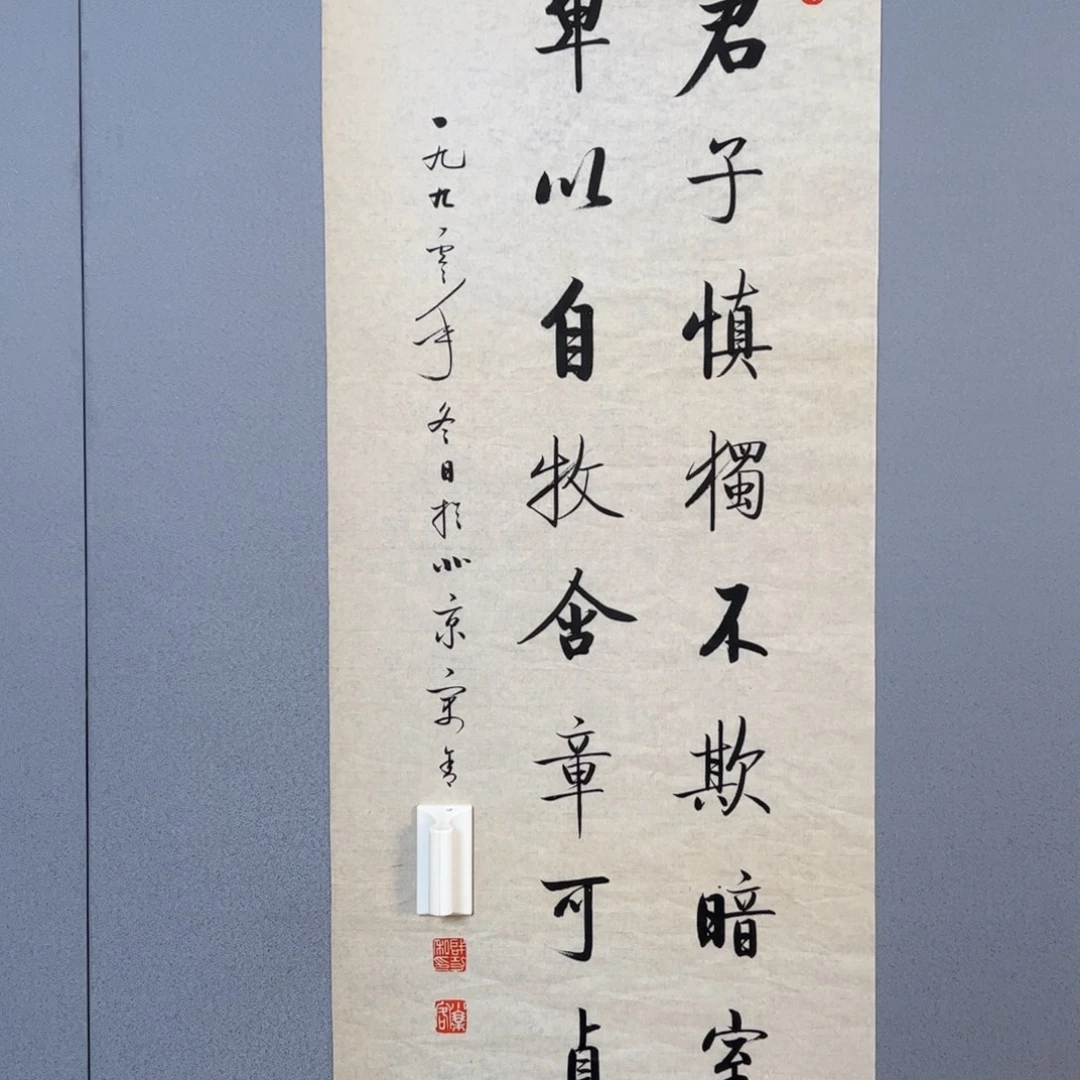 君子慎獨不欺暗室
卑以自牧舍章可貞
一九九零年冬日於北京